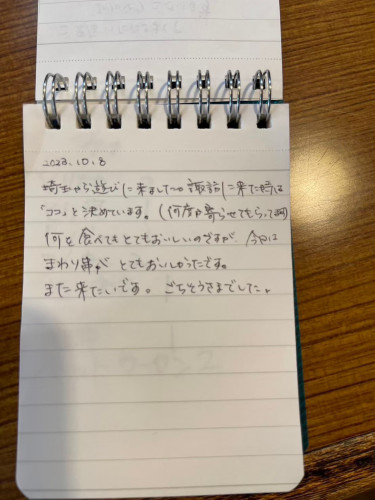 2023.10.8
埼玉から遊びに来ました〜。諏訪に来た時は
「ココ」と決めています。(何度か寄らせてもらって
何を食べてもとてもおいしいのですが、今回は
まわり
とてもおいしかったです。
また来たいです。ごちそうさまでした。